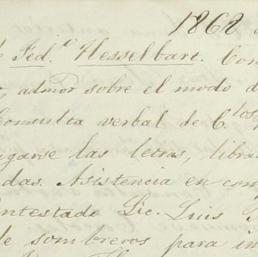 1868
Fed.º Hesselbart. Con
admor sobre el modo d
Consulta verbal de C.tos
garse las letras, libra
das. Asistencia en con
ntestado Lic. Luis
de sombreros para in